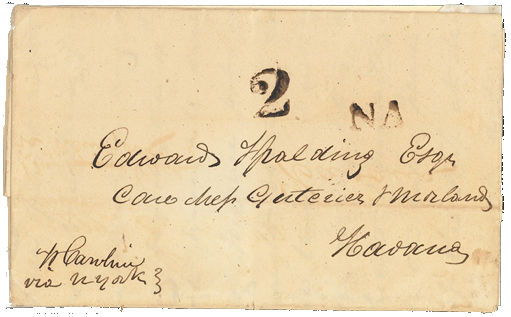 2 NA
Edward Spalding Esqr
Care Mess Gutierres & Morland
Havana
p Caroline
via N York